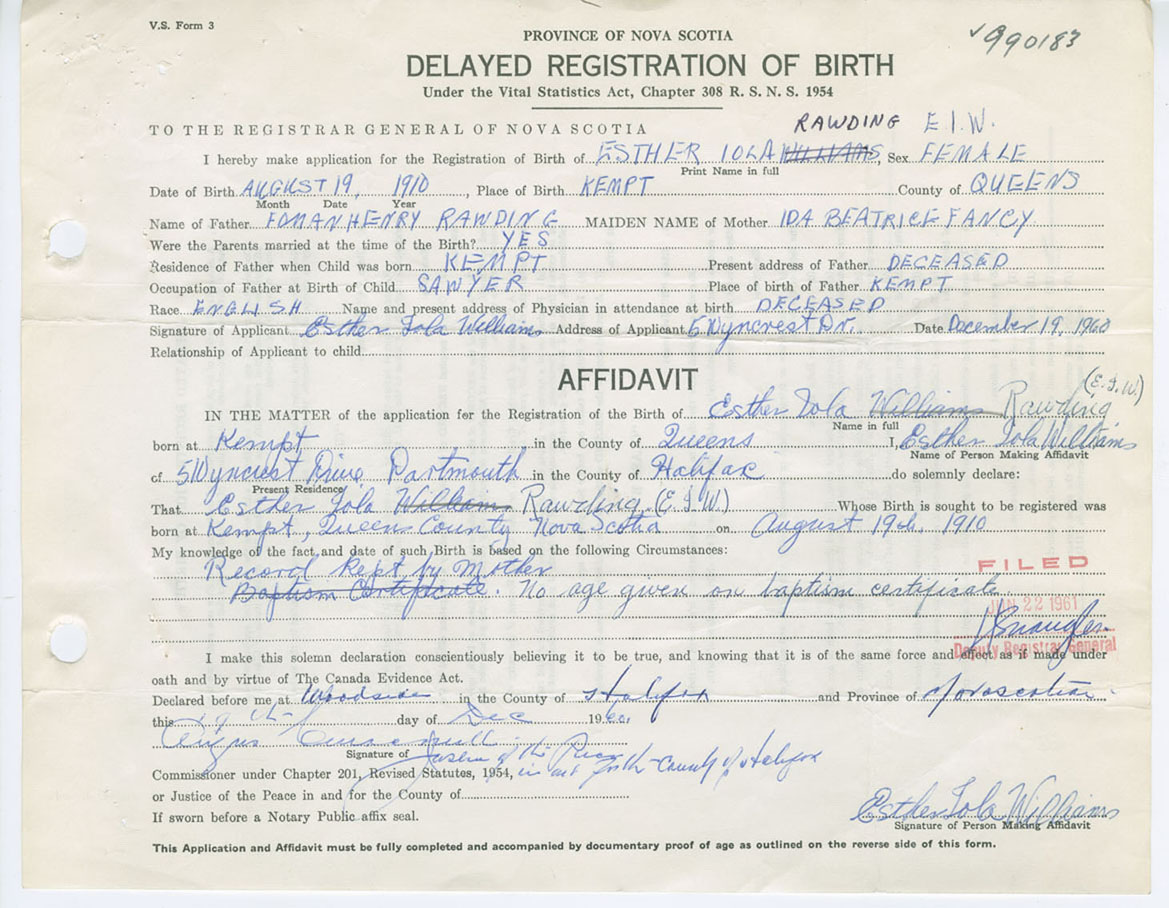 V.S. Form 3
PROVINCE OF NOVA SCOTIA
990183
DELAYED REGISTRATION OF BIRTH
Under the Vital Statistics Act, Chapter 308 R. S. N. S. 1954
RAWDING E I.W.
TO THE REGISTRAR GENERAL OF NOVA SCOTIA
I hereby make application for the Registration of Birth of ESTHER IOLA WILLIAMS, Sex FEMALE
Print Name in full
Date of Birth AUGUST 19, 1910, Place of Birth KEMPT County of QUEENS
Month Date Year
Name of Father HENRY RAWDING MAIDEN NAME of Mother IDA BEATRICE FANCY
Were the Parents married at the time of the Birth? YES
Residence of Father when Child was born KEMPT Present address of Father DECEASED
Occupation of Father at Birth of Child SAWYER Place of birth of Father KEMPT
Race ENGLISH Name and present address of Physician in attendance at birth DECEASED
Signature of Applicant Esther Iola Williams Address of Applicant 5 Wyncrest Dr. Date December 19, 1960
Relationship of Applicant to child
AFFIDAVIT
(E.I.W.)
IN THE MATTER of the application for the Registration of the Birth of Esther Iola Williams Rawding
Name in full
born at Kempt in the County of Queens I, Esther Iola Williams
Name of Person Making Affidavit
of 5 Wyncrest Drive Dartmouth in the County of Halifax do solemnly declare:
Present Residence
That Esther Iola Williams Rawding (E I W) Whose Birth is sought to be registered was
born at Kempt, Queens County Nova Scotia on August 19th, 1910
My knowledge of the fact and date of such Birth is based on the following Circumstances:
Record kept by Mother
FILED
Baptism Certificate. No age given on baptism certificate
JAN 22 1961
Deputy Registrar General
I make this solemn declaration conscientiously believing it to be true, and knowing that it is of the same force and effect as if made under
oath and by virtue of The Canada Evidence Act.
Declared before me at Woodside in the County of Halifax and Province of Novascotia
this 19th day of Dec 1960.
Angus
Signature of Justice of the Peace
Commissioner under Chapter 201, Revised Statutes, 1954, in and for the County of Halifax
or Justice of the Peace in and for the County of
If sworn before a Notary Public affix seal.
Esther Iola Williams
Signature of Person Making Affidavit
This Application and Affidavit must be fully completed and accompanied by documentary proof of age as outlined on the reverse side of this form.